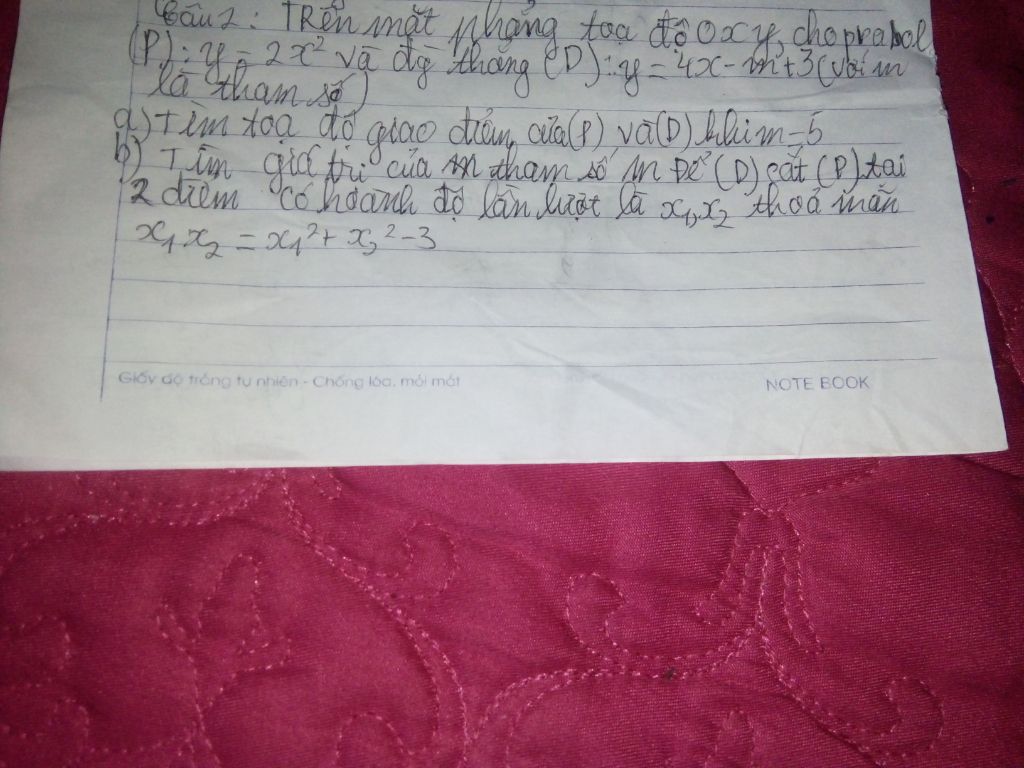 Câu 2: Trên mặt phẳng toạ độ Oxy, cho prabol
(P): y = 2x² và đg thẳng (D): y = 4x - m + 3 (với m
là tham số)
a) Tìm toạ độ giao điểm của (P) và (D) khi m = 5
b) Tìm giá trị của m tham số m Để (D) cắt (P) tại
2 điểm có hoành độ lần lượt là x₁, x₂ thoả mãn
x₁.x₂ = x₁² + x₂² - 3
Giấy độ trắng tự nhiên - Chống lóa, mỏi mắt
NOTE BOOK